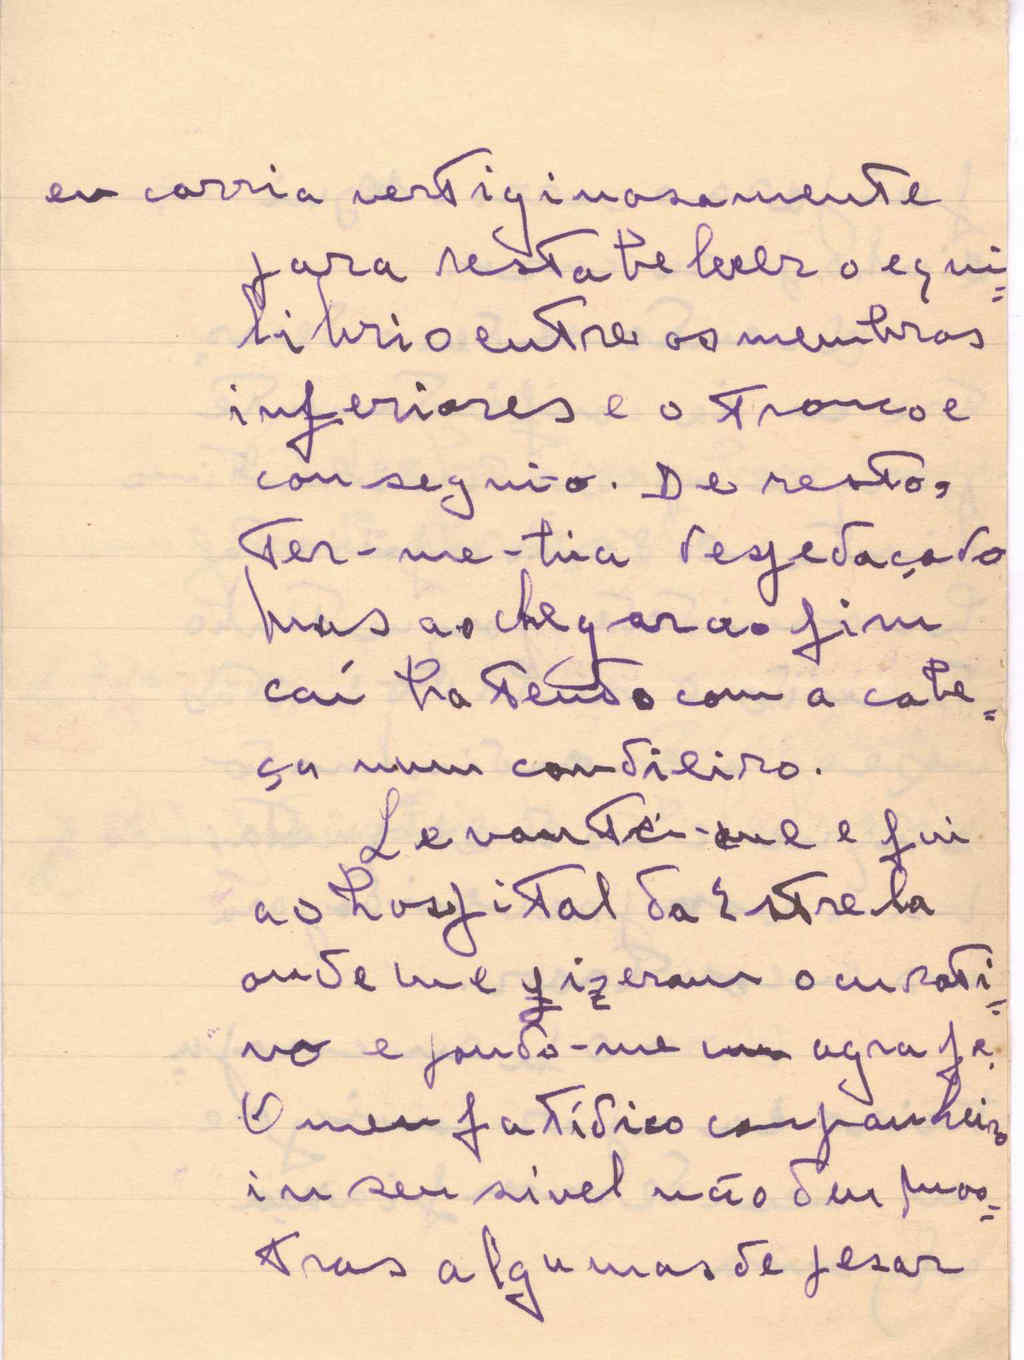 eu corria vertiginosamente
para restabelecer o equi=
librio entre os membros
inferiores e o tronco e
consegui-o. De resto,
ter-me-hia despedaçado
mas ao chegar ao fim
caí batendo com a cabe=
ça num candieiro.
Levantei-me e fui
ao hospital da Estrela
onde me fizeram o curati=
vo e pondo-me um agrafe.
O meu fatídico companheiro
insensível não deu mos=
tras algumas de pesar